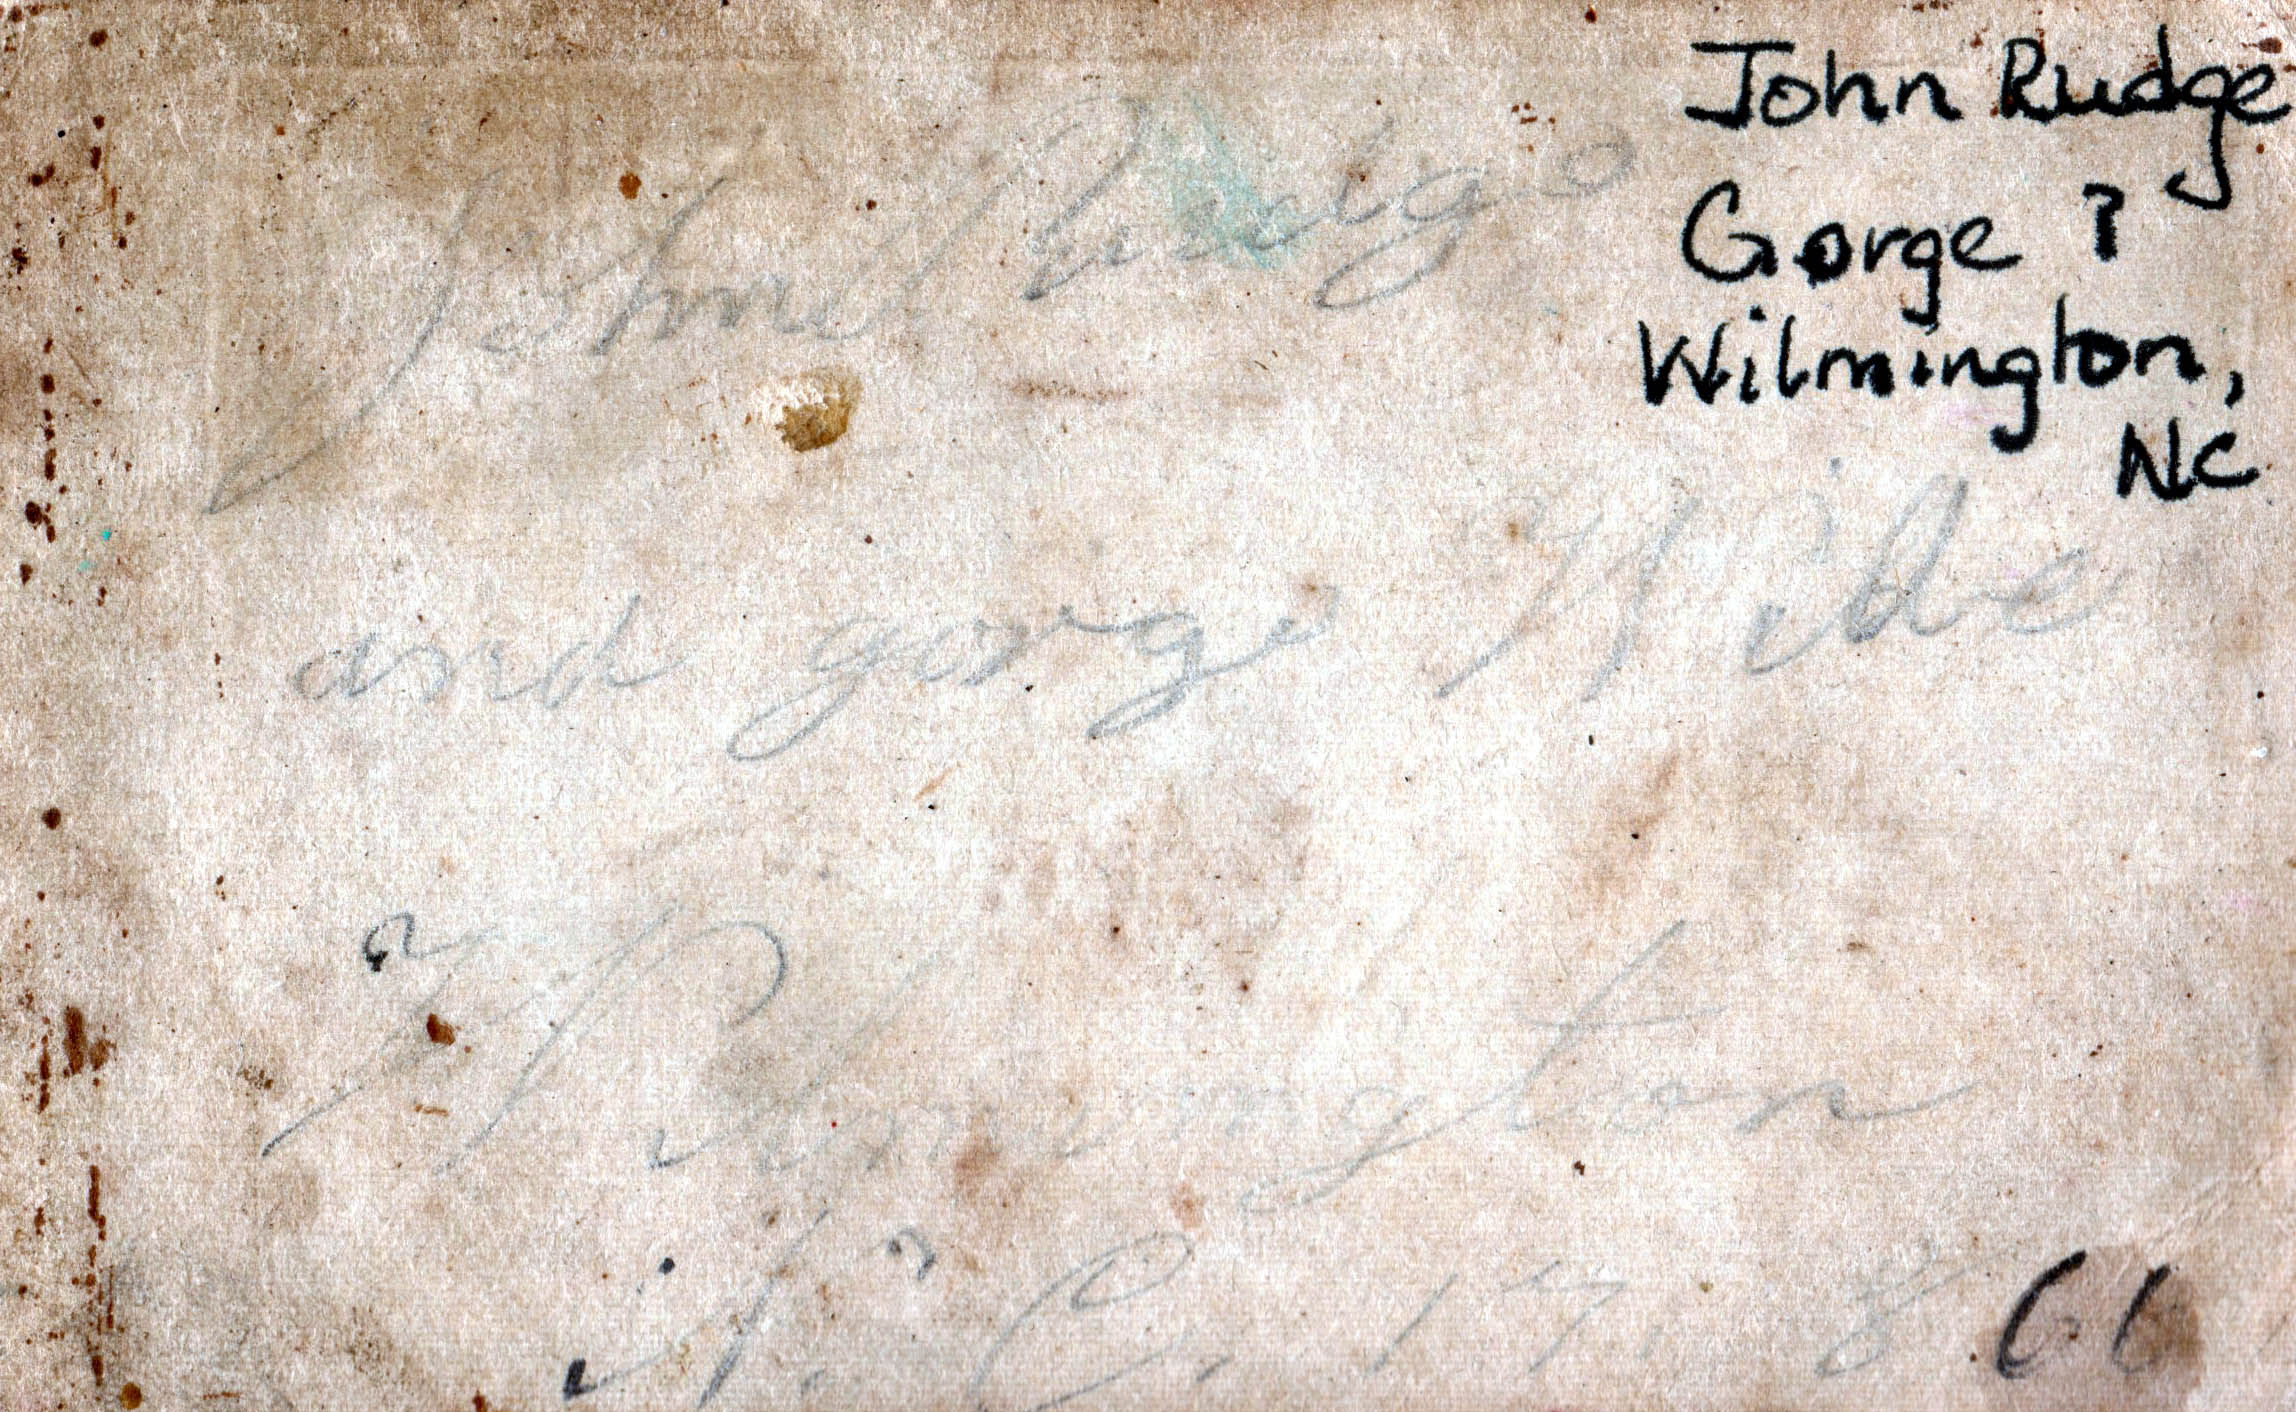 John Rudge
Gorge ?
Wilmington,
NC
John Rudge
and gorge
Wilmington
N. C.
66